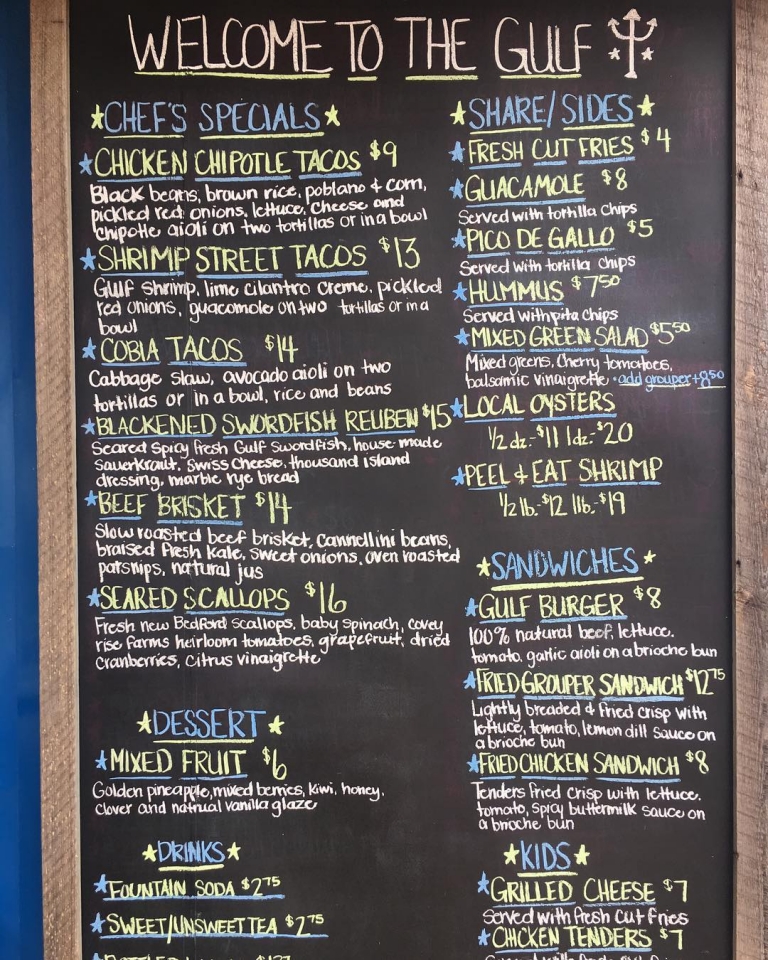 WELCOME TO THE GULF
CHEF'S SPECIALS
CHICKEN CHIPOTLE TACOS $9
Black beans, brown rice, poblano & corn,
pickled red onions, lettuce, cheese and
chipotle aioli on two tortillas or in a bowl
SHRIMP STREET TACOS $13
Gulf shrimp, lime cilantro creme, pickled
red onions, guacomole on two tortillas or in a
bowl
COBIA TACOS $14
Cabbage slaw, avocado aioli on two
tortillas or in a bowl, rice and beans
BLACKENED SWORDFISH REUBEN $15
Seared spicy fresh Gulf swordfish, house made
sauerkraut, swiss cheese, thousand island
dressing, marble rye bread
BEEF BRISKET $14
Slow roasted beef brisket, cannellini beans,
braised fresh kale, sweet onions, oven roasted
parsnips, natural jus
SEARED SCALLOPS $16
Fresh new Bedford scallops, baby spinach, covey
rise farms heirloom tomatoes, grapefruit, dried
cranberries, citrus vinaigrette
DESSERT
MIXED FRUIT $6
Golden pineapple, mixed berries, kiwi, honey,
clover and natrual vanilla glaze
DRINKS
FOUNTAIN SODA $2.75
SWEET/UNSWEET TEA $2.75
SHARE/SIDES
FRESH CUT FRIES $4
GUACAMOLE $8
Served with tortilla chips
PICO DE GALLO $5
Served with tortilla chips
HUMMUS $7.50
Served with pita chips
MIXED GREEN SALAD $5.50
Mixed greens, Cherry tomatoes,
balsamic vinaigrette • add grouper +9.50
LOCAL OYSTERS
1/2 dz-$11 1dz-$20
PEEL & EAT SHRIMP
1/2 lb-$12 1lb-$19
SANDWICHES
GULF BURGER $8
100% natural beef, lettuce.
tomato, garlic aioli on a brioche bun
FRIED GROUPER SANDWICH $12.75
Lightly breaded & fried crisp with
lettuce, tomato, lemon dill sauce on
a brioche bun
FRIED CHICKEN SANDWICH $8
Tenders fried crisp with lettuce.
tomato, spicy buttermilk sauce on
a brioche bun
KIDS
GRILLED CHEESE $7
Served with fresh cut fries
CHICKEN TENDERS $7